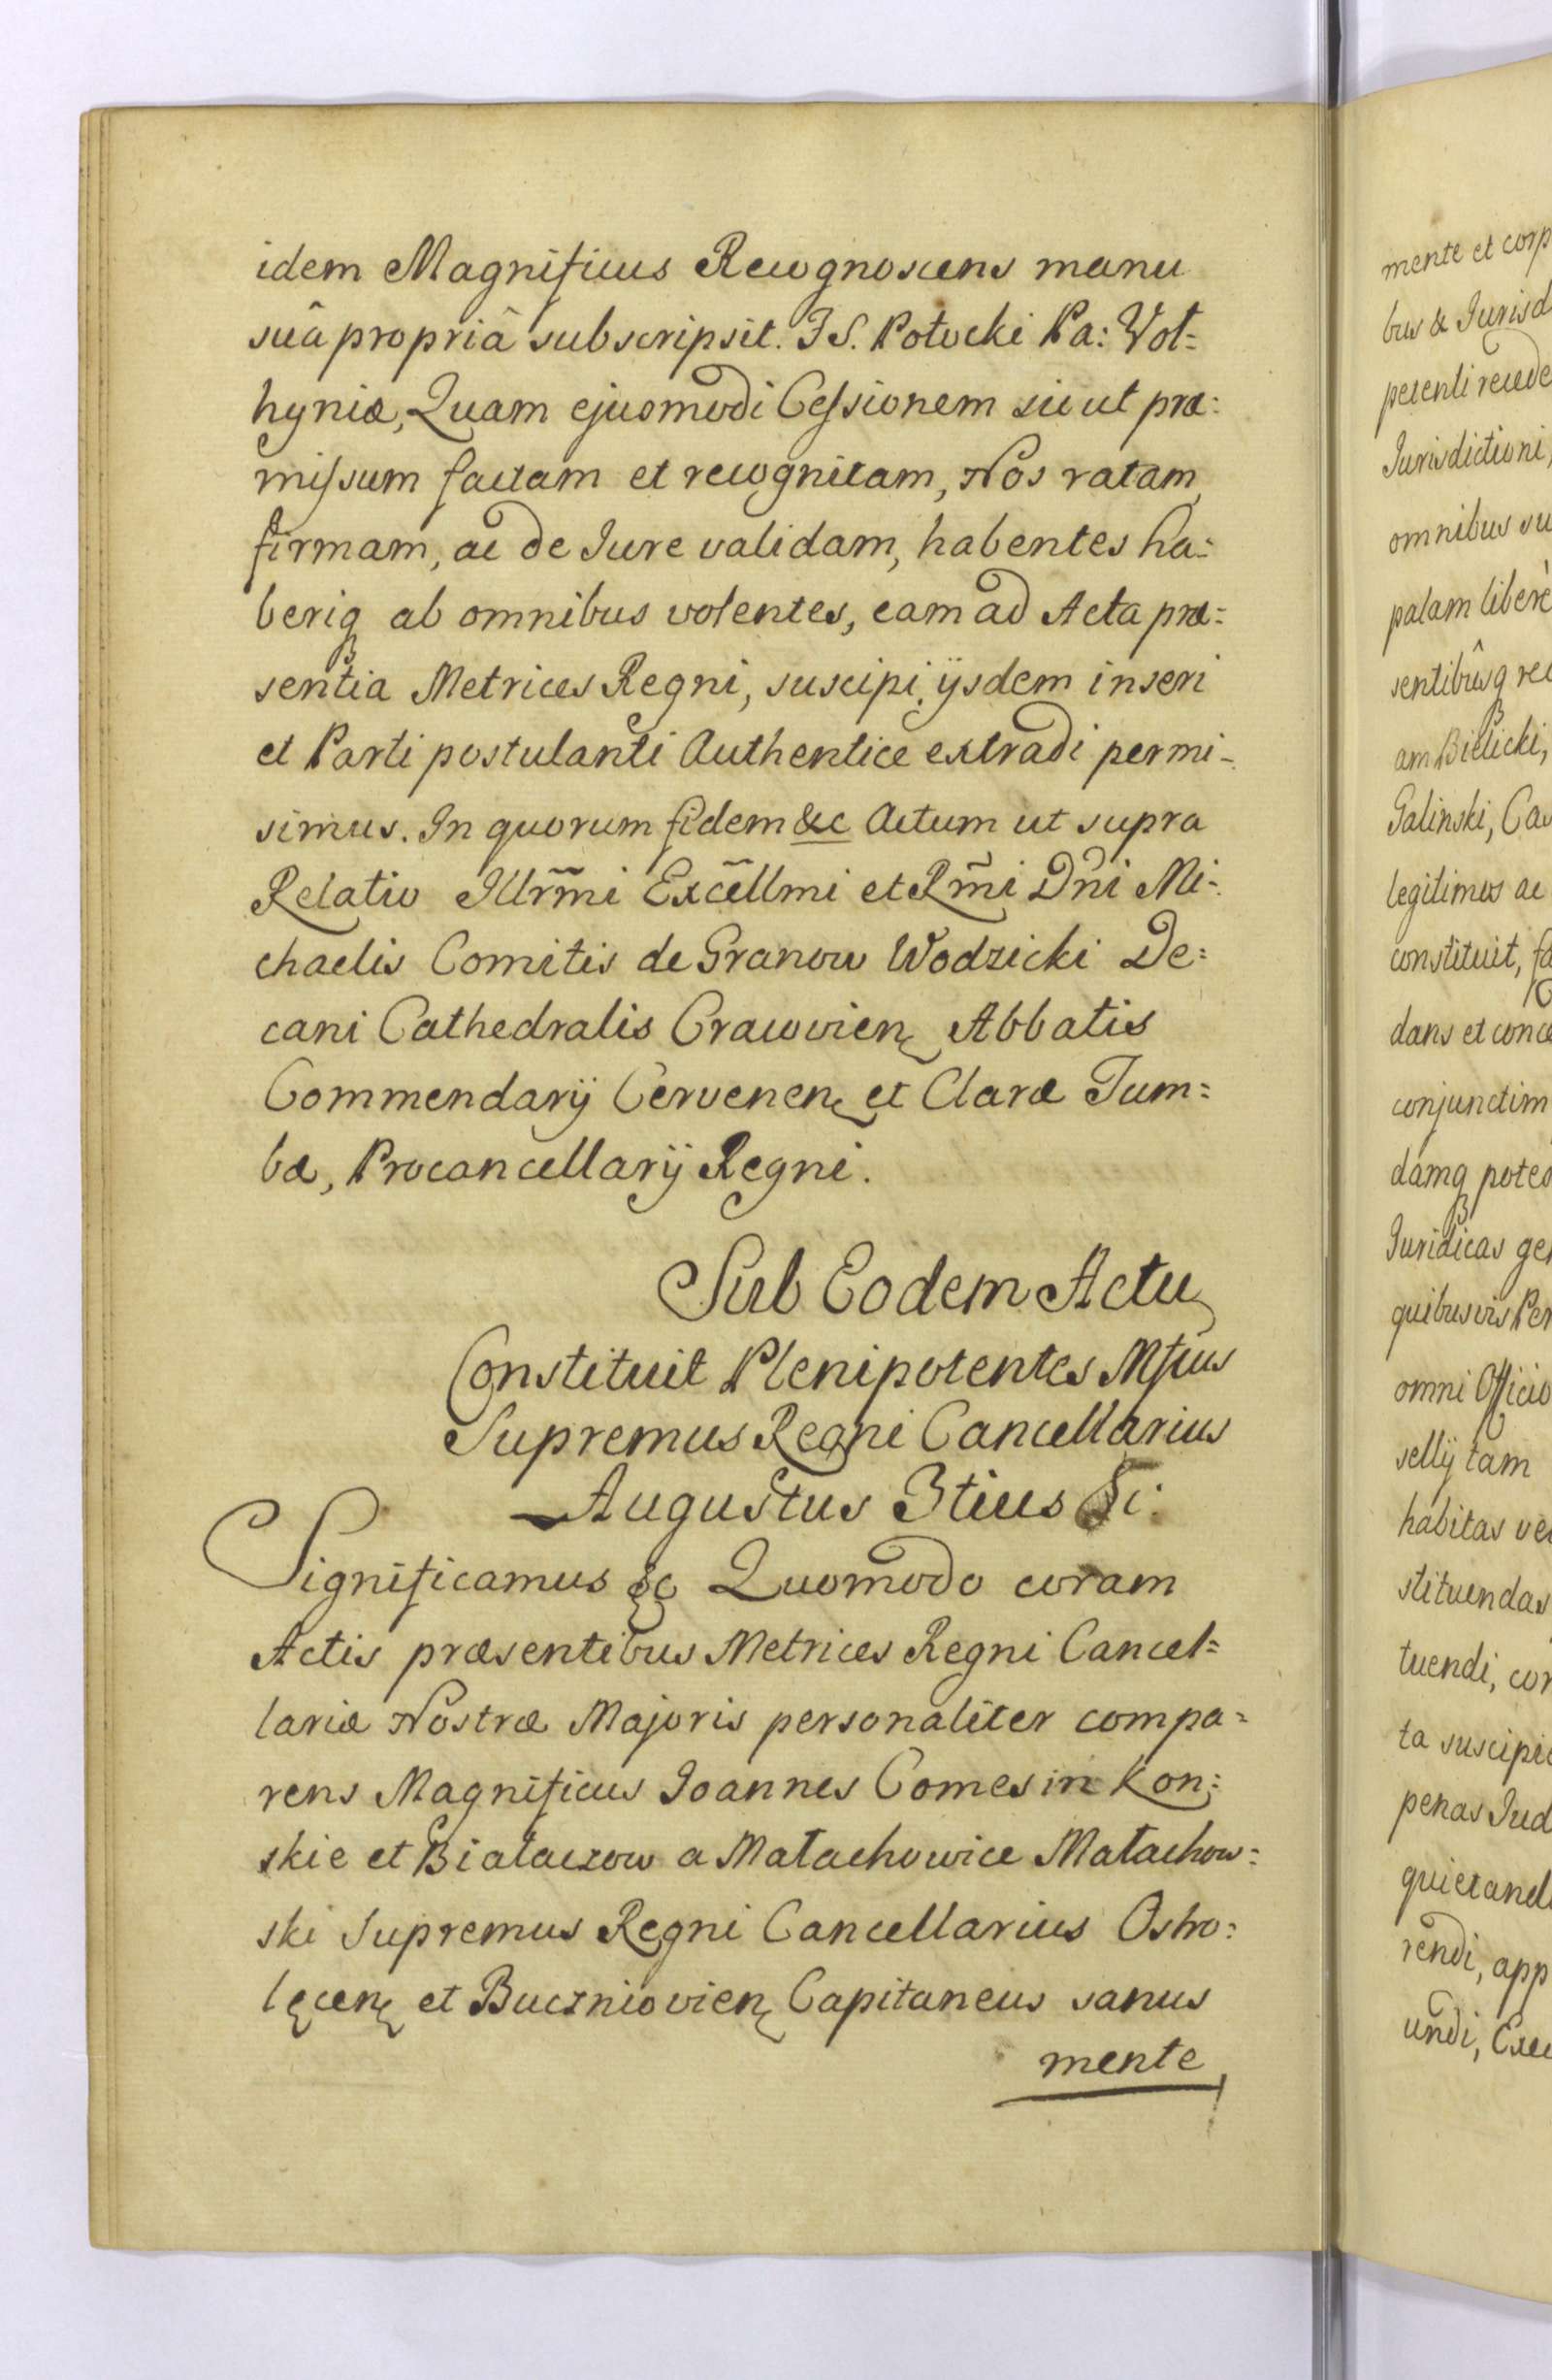 idem Magnificus Recognoscens manu
suâ propriâ subscripsit. J S. Potocki Pa: Vol=
hyniæ, Quam ejusmodi Cessionem sicut præ=
missum factam et recognitam, Nos ratam,
firmam, ac de Jure validam, habentes ha=
beriq ab omnibus volentes, eam ad Acta præ=
sentia Metrices Regni, suscipi, ijsdem inseri
et Parti postulanti Authentice extradi permi-
simus. In quorum fidem &c Actum ut supra
Relatio Illrmi Excellmi et Rmi Dni Mi-
chaelis Comitis de Granow Wodzicki De=
cani Cathedralis Cracovien Abbatis
Commendarij Cervenen et Claræ Tum=
bæ, Procancellarij Regni.
Sub Eodem Actu
Constituit Plenipotentes Mfius
Supremus Regni Cancellarius
Augustus 3tius &c:
Significamus &c Quomodo coram
Actis præsentibus Metrices Regni Cancel=
lariæ Nostræ Majoris personaliter compa=
rens Magnificus Joannes Comes in Kon=
skie et Białaczow a Małachowice Małachow=
ski Supremus Regni Cancellarius Ostro=
lęcen et Buczniovien Capitaneus sanus
mente
mente et corp
bus & Jurisd
petenti recede
Jurisdictioni,
omnibus su
palam liberè
sentibûsq rec
am Bielicki,
Galinski, Cas
legitimos ac
constituit, fa
dans et conce
conjunctim
damq potes
Juridicas ge
quibusvis Per
omni Officio
sellij tam
habitas ve
stituendas
tuendi, con
ta suscipie
penas Jud
quietand
rendi, app
undi, Exe